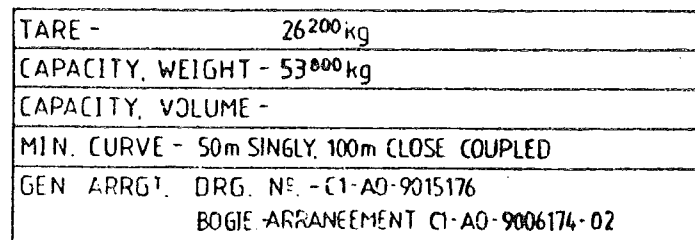 TARE - 26200kg
CAPACITY, WEIGHT - 53800kg
CAPACITY, VOLUME -
MIN. CURVE - 50m SINGLY, 100m CLOSE COUPLED
GEN ARRGT. DRG. Nº. - C1-A0-9015176
BOGIE ARRANEEMENT C1-A0-9006174-02